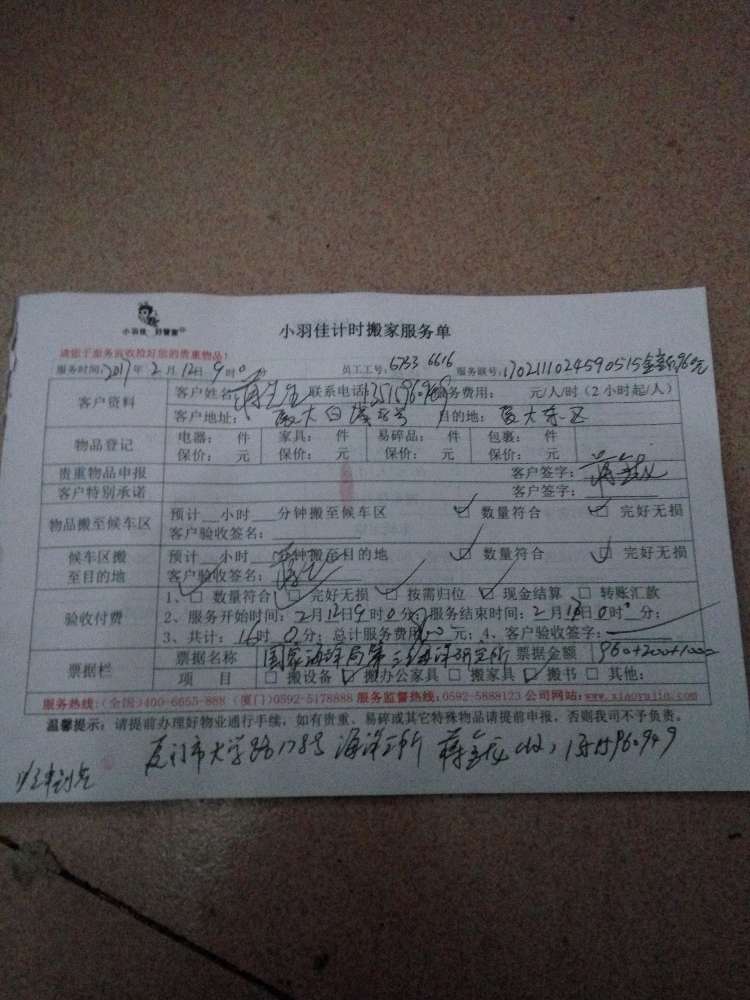 小羽佳 好管家
小羽佳计时搬家服务单
请您于服务前收拾好您的贵重物品!
服务时间:2017年2月12日9时0分 员工工号:6733 6616 服务联号:1702111024590515
客户资料 客户姓名: 联系电话: 服务费用: 元/人/时(2小时起/人)
客户地址:厦大白城 目的地:厦大东区
物品登记 电器: 件 家具: 件 易碎品: 件 包裹: 件
保价: 元 保价: 元 保价: 元 保价: 元
贵重物品申报 客户签字:
客户特别承诺 客户签字:
物品搬至候车区 预计__小时__分钟搬至候车区 □ 数量符合 □ 完好无损
客户验收签名:
候车区搬至目的地 预计__小时__分钟搬至目的地 □ 数量符合 □ 完好无损
客户验收签名:
验收付费 1、□ 数量符合 □ 完好无损 □ 按需归位 □ 现金结算 □ 转账汇款
2、服务开始时间:2月12日9时0分;服务结束时间:2月 日0时 分;
3、共计:16时0分;总计服务费用 元;4、客户验收签字:
票据栏 票据名称 国家海洋局第三海洋研究所 票据金额 960+200+1000
项 目 □ 搬设备 □ 搬办公家具 □ 搬家具 □ 搬书 □ 其他:
服务热线:(全国)400-6655-888 (厦门)0592-5178888 服务监督热线:0592-5888123 公司网站:www.xiaoyujia.com
温馨提示:请提前办理好物业通行手续,如有贵重、易碎或其它特殊物品请提前申报,否则我司不予负责。
厦门市大学路178号 海洋三所 蒋金龙 收